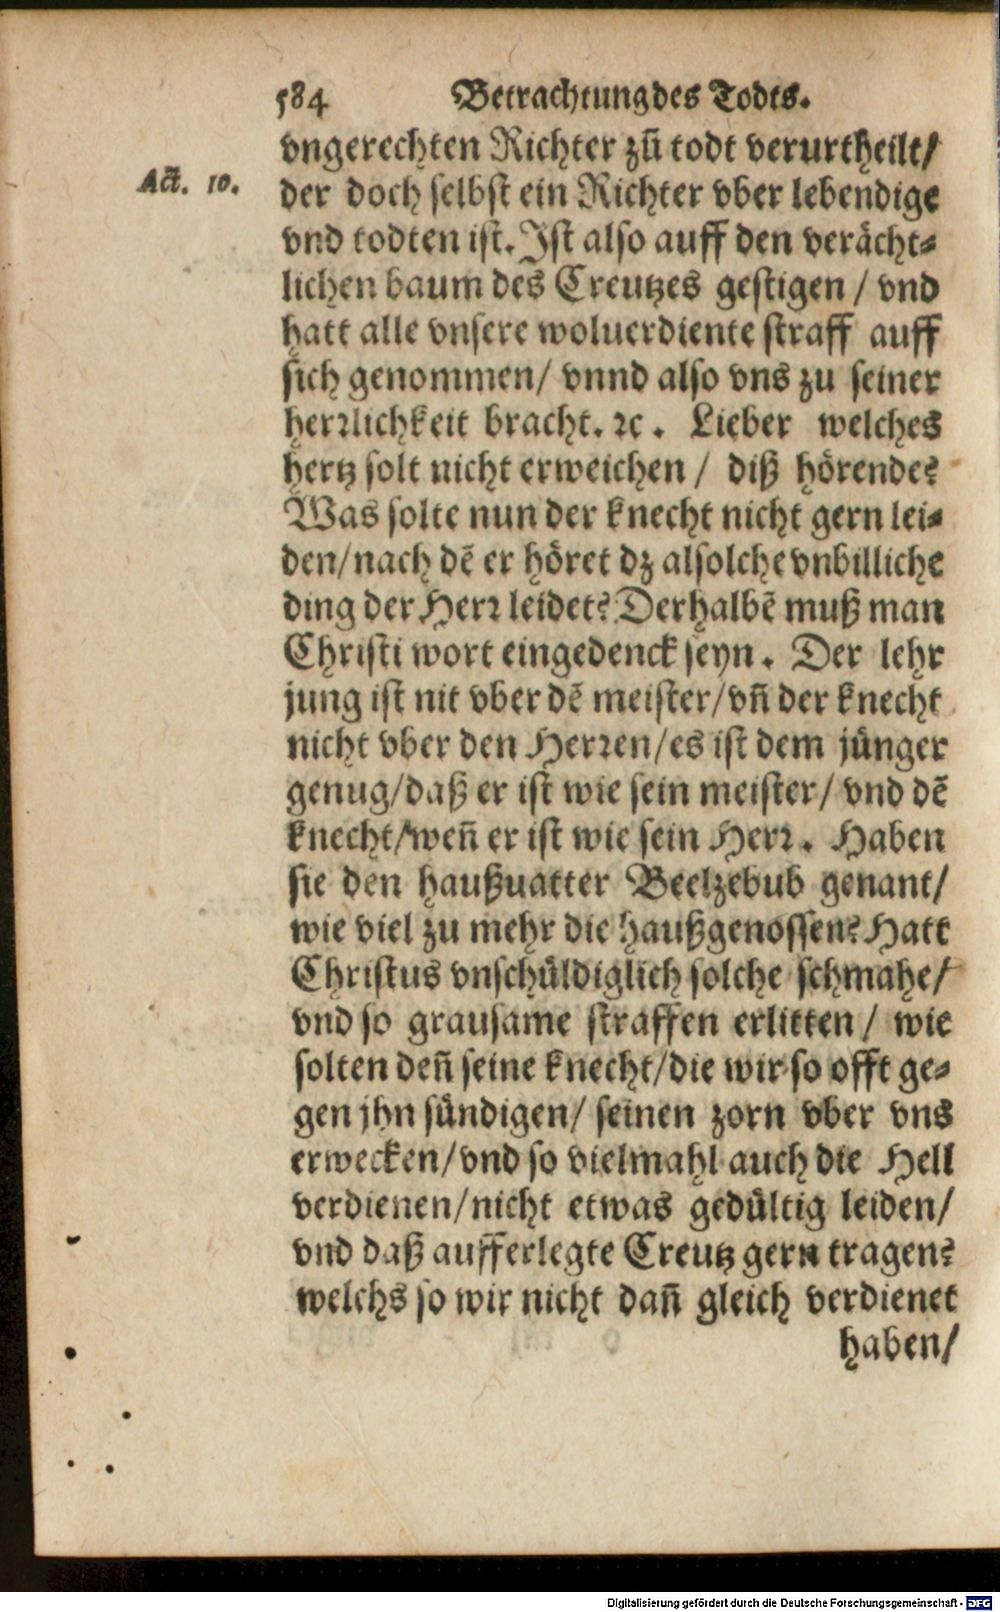 584 Betrachtung des Todts.
vngerechten Richter zū todt verurtheilt/
Act. 10.
der doch selbst ein Richter vber lebendige
vnd todten ist. Ist also auff den verächt-
lichen baum des Creutzes gestigen / vnd
hatt alle vnsere woluerdiente straff auff
sich genommen/ vnnd also vns zu seiner
herꝛlichkeit bracht. ꝛc. Lieber welches
hertz solt nicht erweichen / diß hörende?
Was solte nun der knecht nicht gern lei-
den/nach dē er höret dz alsolche vnbilliche
ding der Herꝛ leidet? Derhalbē muß man
Christi wort eingedenck seyn. Der lehr
jung ist nit vber dē meister/vñ der knecht
nicht vber den Herꝛen/es ist dem jünger
genug/daß er ist wie sein meister/ vnd dē
knecht/weñ er ist wie sein Herꝛ. Haben
sie den haußuatter Beelzebub genant/
wie viel zu mehr die haußgenossen? Hatt
Christus vnschüldiglich solche schmahe/
vnd so grausame straffen erlitten / wie
solten deñ seine knecht/die wir so offt ge-
gen jhn sündigen/ seinen zorn vber vns
erwecken/vnd so vielmahl auch die Hell
verdienen/nicht etwas gedültig leiden/
vnd daß aufferlegte Creutz gern tragen?
welchs so wir nicht dañ gleich verdienet
haben/
Digitalisierung gefördert durch die Deutsche Forschungsgemeinschaft - DFG